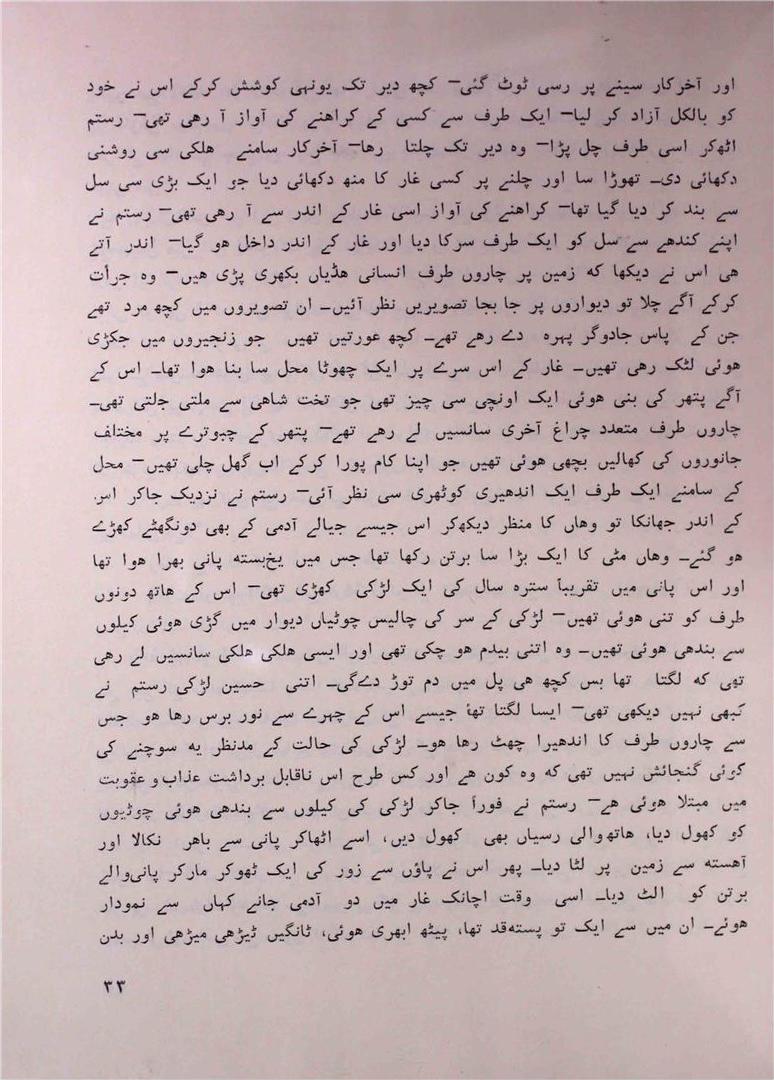 اور آخرکار سینے پر رسی ٹوٹ گئی— کچھ دیر تک یونہی کوشش کرکے اس نے خود
کو بالکل آزاد کر لیا— ایک طرف سے کسی کے کراھنے کی آواز آ رھی تھی— رستم
اٹھکر اسی طرف چل پڑا— وہ دیر تک چلتا رھا— آخرکار سامنے ھلکی سی روشنی
دکھائی دی۔ تھوڑا سا اور چلنے پر کسی غار کا منھ دکھائی دیا جو ایک بڑی سی سل
سے بند کر دیا گیا تھا— کراھنے کی آواز اسی غار کے اندر سے آ رھی تھی— رستم نے
اپنے کندھے سے سل کو ایک طرف سرکا دیا اور غار کے اندر داخل ھو گیا— اندر آتے
ھی اس نے دیکھا کہ زمین پر چاروں طرف انسانی ھڈیاں بکھری پڑی ھیں— وہ جرأت
کرکے آگے چلا تو دیواروں پر جا بجا تصویریں نظر آئیں۔ ان تصویروں میں کچھ مرد تھے
جن کے پاس جادوگر پہرہ دے رھے تھے۔ کچھ عورتیں تھیں جو زنجیروں میں جکڑی
ھوئی لٹک رھی تھیں۔ غار کے اس سرے پر ایک چھوٹا محل سا بنا ھوا تھا۔ اس کے
آگے پتھر کی بنی ھوئی ایک اونچی سی چیز تھی جو تخت شاھی سے ملتی جلتی تھی۔
چاروں طرف متعدد چراغ آخری سانسیں لے رھے تھے— پتھر کے چبوترے پر مختلف
جانوروں کی کھالیں بچھی ھوئی تھیں جو اپنا کام پورا کرکے اب گھل چلی تھیں— محل
کے سامنے ایک طرف ایک اندھیری کوٹھری سی نظر آئی— رستم نے نزدیک جاکر اس
کے اندر جھانکا تو وھاں کا منظر دیکھکر اس جیسے جیالے آدمی کے بھی رونگھٹے کھڑے
ھو گئے۔ وھاں مٹی کا ایک بڑا سا برتن رکھا تھا جس میں یخبستہ پانی بھرا ھوا تھا
اور اس پانی میں تقریباً سترہ سال کی ایک لڑکی کھڑی تھی— اس کے ھاتھ دونوں
طرف کو تنی ھوئی تھیں— لڑکی کے سر کی چالیس چوٹیاں دیوار میں گڑی ھوئی کیلوں
سے بندھی ھوئی تھیں۔ وہ اتنی بیدم ھو چکی تھی اور ایسی ھلکی ھلکی سانسیں لے رھی
تھی کہ لگتا تھا بس کچھ ھی پل میں دم توڑ دےگی۔ اتنی حسین لڑکی رستم نے
کبھی نہیں دیکھی تھی— ایسا لگتا تھا جیسے اس کے چہرے سے نور برس رھا ھو جس
سے چاروں طرف کا اندھیرا چھٹ رھا ھو۔ لڑکی کی حالت کے مدنظر یہ سوچنے کی
کوئی گنجائش نہیں تھی کہ وہ کون ھے اور کس طرح اس ناقابل برداشت عذاب و عقوبت
میں مبتلا ھوئی ھے— رستم نے فوراً جاکر لڑکی کی کیلوں سے بندھی ھوئی چوٹیوں
کو کھول دیا، ھاتھوالی رسیاں بھی کھول دیں، اسے اٹھاکر پانی سے باھر نکالا اور
آھستہ سے زمین پر لٹا دیا۔ پھر اس نے پاؤں سے زور کی ایک ٹھوکر مارکر پانیوالے
برتن کو الٹ دیا۔ اسی وقت اچانک غار میں دو آدمی جانے کہاں سے نمودار
ھوئے۔ ان میں سے ایک تو پستہقد تھا، پیٹھ ابھری ھوئی، ٹانگیں ٹیڑھی میڑھی اور بدن
۳۳